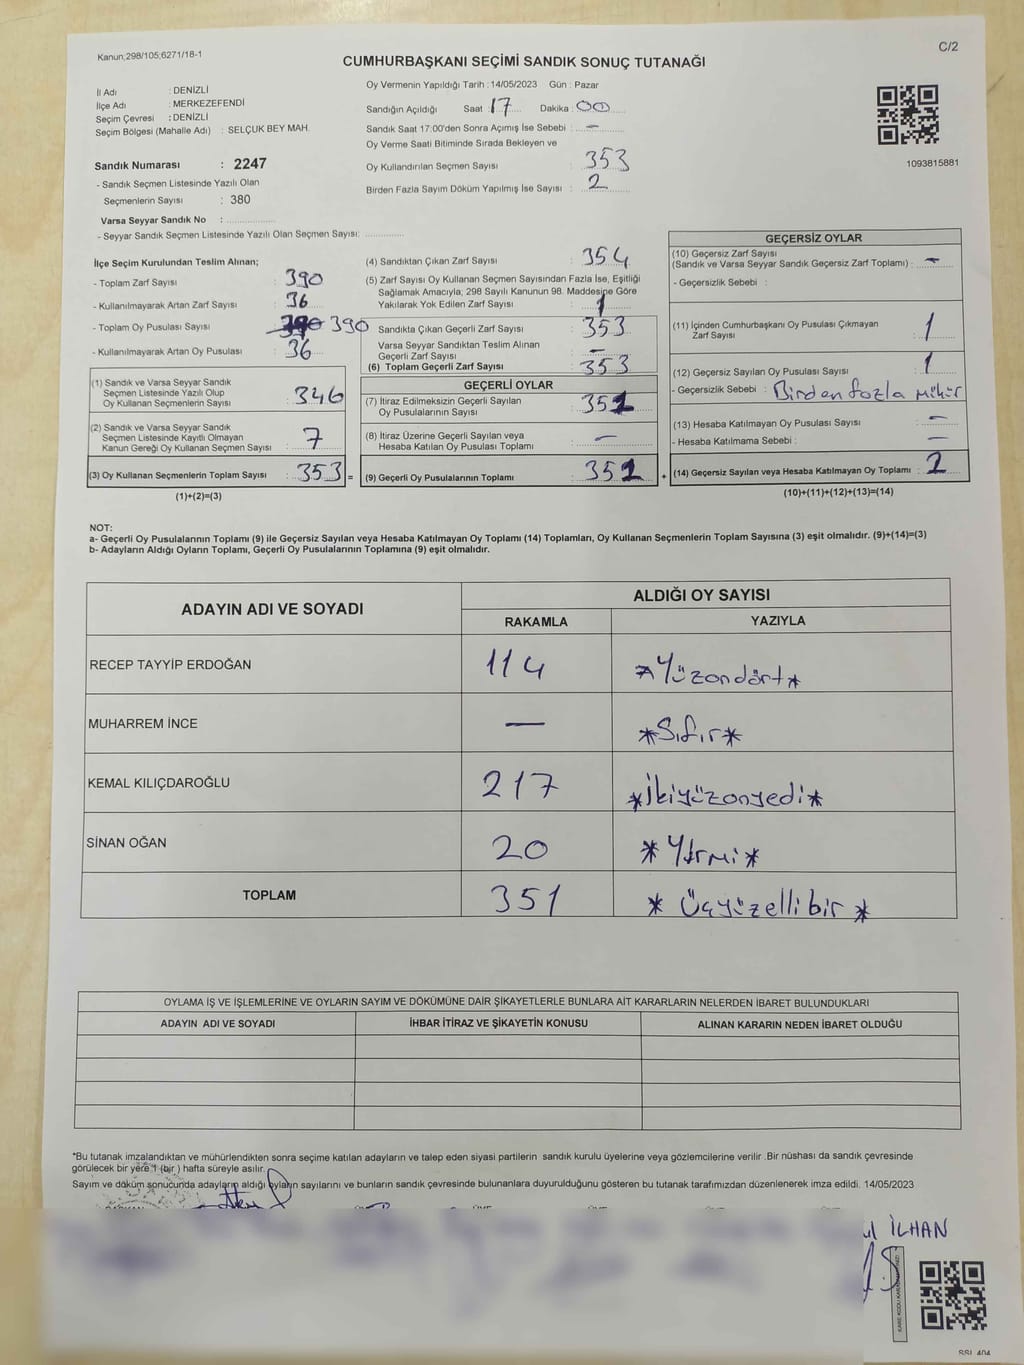 Kanun;298/105;6271/18-1
C/2
CUMHURBAŞKANI SEÇİMİ SANDIK SONUÇ TUTANAĞI
İl Adı : DENİZLİ
İlçe Adı : MERKEZEFENDİ
Seçim Çevresi : DENİZLİ
Seçim Bölgesi (Mahalle Adı) : SELÇUK BEY MAH.
Sandık Numarası : 2247
- Sandık Seçmen Listesinde Yazılı Olan
Seçmenlerin Sayısı : 380
Varsa Seyyar Sandık No : ..............
- Seyyar Sandık Seçmen Listesinde Yazılı Olan Seçmen Sayısı: ..............
Oy Vermenin Yapıldığı Tarih : 14/05/2023 Gün : Pazar
Sandığın Açıldığı Saat : 17 Dakika : 00
Sandık Saat 17:00'den Sonra Açımış İse Sebebi : –
Oy Verme Saati Bitiminde Sırada Bekleyen ve
Oy Kullandırılan Seçmen Sayısı : 353
Birden Fazla Sayım Döküm Yapılmış İse Sayısı : 2
1093815881
İlçe Seçim Kurulundan Teslim Alınan;
- Toplam Zarf Sayısı : 390
- Kullanılmayarak Artan Zarf Sayısı : 36
- Toplam Oy Pusulası Sayısı : 390 390
- Kullanılmayarak Artan Oy Pusulası : 36
(1) Sandık ve Varsa Seyyar Sandık
Seçmen Listesinde Yazılı Olup
Oy Kullanan Seçmenlerin Sayısı : 346
(2) Sandık ve Varsa Seyyar Sandık
Seçmen Listesinde Kayıtlı Olmayan
Kanun Gereği Oy Kullanan Seçmen Sayısı : 7
(3) Oy Kullanan Seçmenlerin Toplam Sayısı : 353 =
(1)+(2)=(3)
(4) Sandıktan Çıkan Zarf Sayısı : 354
(5) Zarf Sayısı Oy Kullanan Seçmen Sayısından Fazla İse, Eşitliği
Sağlamak Amacıyla, 298 Sayılı Kanunun 98. Maddesine Göre
Yakılarak Yok Edilen Zarf Sayısı : 1
Sandıkta Çıkan Geçerli Zarf Sayısı : 353
Varsa Seyyar Sandıktan Teslim Alınan
Geçerli Zarf Sayısı : –
(6) Toplam Geçerli Zarf Sayısı : 353
GEÇERLİ OYLAR
(7) İtiraz Edilmeksizin Geçerli Sayılan
Oy Pusulalarının Sayısı : 351
(8) İtiraz Üzerine Geçerli Sayılan veya
Hesaba Katılan Oy Pusulası Toplamı : –
(9) Geçerli Oy Pusulalarının Toplamı : 351 +
GEÇERSİZ OYLAR
(10) Geçersiz Zarf Sayısı
(Sandık ve Varsa Seyyar Sandık Geçersiz Zarf Toplamı) : –
- Geçersizlik Sebebi :
(11) İçinden Cumhurbaşkanı Oy Pusulası Çıkmayan
Zarf Sayısı : 1
(12) Geçersiz Sayılan Oy Pusulası Sayısı : 1
- Geçersizlik Sebebi : Birden fazla mühür
(13) Hesaba Katılmayan Oy Pusulası Sayısı : –
- Hesaba Katılmama Sebebi : –
(14) Geçersiz Sayılan veya Hesaba Katılmayan Oy Toplamı : 2
(10)+(11)+(12)+(13)=(14)
NOT:
a- Geçerli Oy Pusulalarının Toplamı (9) ile Geçersiz Sayılan veya Hesaba Katılmayan Oy Toplamı (14) Toplamları, Oy Kullanan Seçmenlerin Toplam Sayısına (3) eşit olmalıdır. (9)+(14)=(3)
b- Adayların Aldığı Oyların Toplamı, Geçerli Oy Pusulalarının Toplamına (9) eşit olmalıdır.
ADAYIN ADI VE SOYADI ALDIĞI OY SAYISI
RAKAMLA YAZIYLA
RECEP TAYYİP ERDOĞAN 114 *Yüzondört*
MUHARREM İNCE – *Sıfır*
KEMAL KILIÇDAROĞLU 217 *İkiyüzonyedi*
SİNAN OĞAN 20 *Yirmi*
TOPLAM 351 * Üçyüzellibir *
OYLAMA İŞ VE İŞLEMLERİNE VE OYLARIN SAYIM VE DÖKÜMÜNE DAİR ŞİKAYETLERLE BUNLARA AİT KARARLARIN NELERDEN İBARET BULUNDUKLARI
ADAYIN ADI VE SOYADI İHBAR İTİRAZ VE ŞİKAYETİN KONUSU ALINAN KARARIN NEDEN İBARET OLDUĞU
*Bu tutanak imzalandıktan ve mühürlendikten sonra seçime katılan adayların ve talep eden siyasi partilerin sandık kurulu üyelerine veya gözlemcilerine verilir .Bir nüshası da sandık çevresinde
görülecek bir yere 1 (bir ) hafta süreyle asılır.
Sayım ve döküm sonucunda adayların aldığı oyların sayılarını ve bunların sandık çevresinde bulunanlara duyurulduğunu gösteren bu tutanak tarafımızdan düzenlenerek imza edildi. 14/05/2023
İLHAN